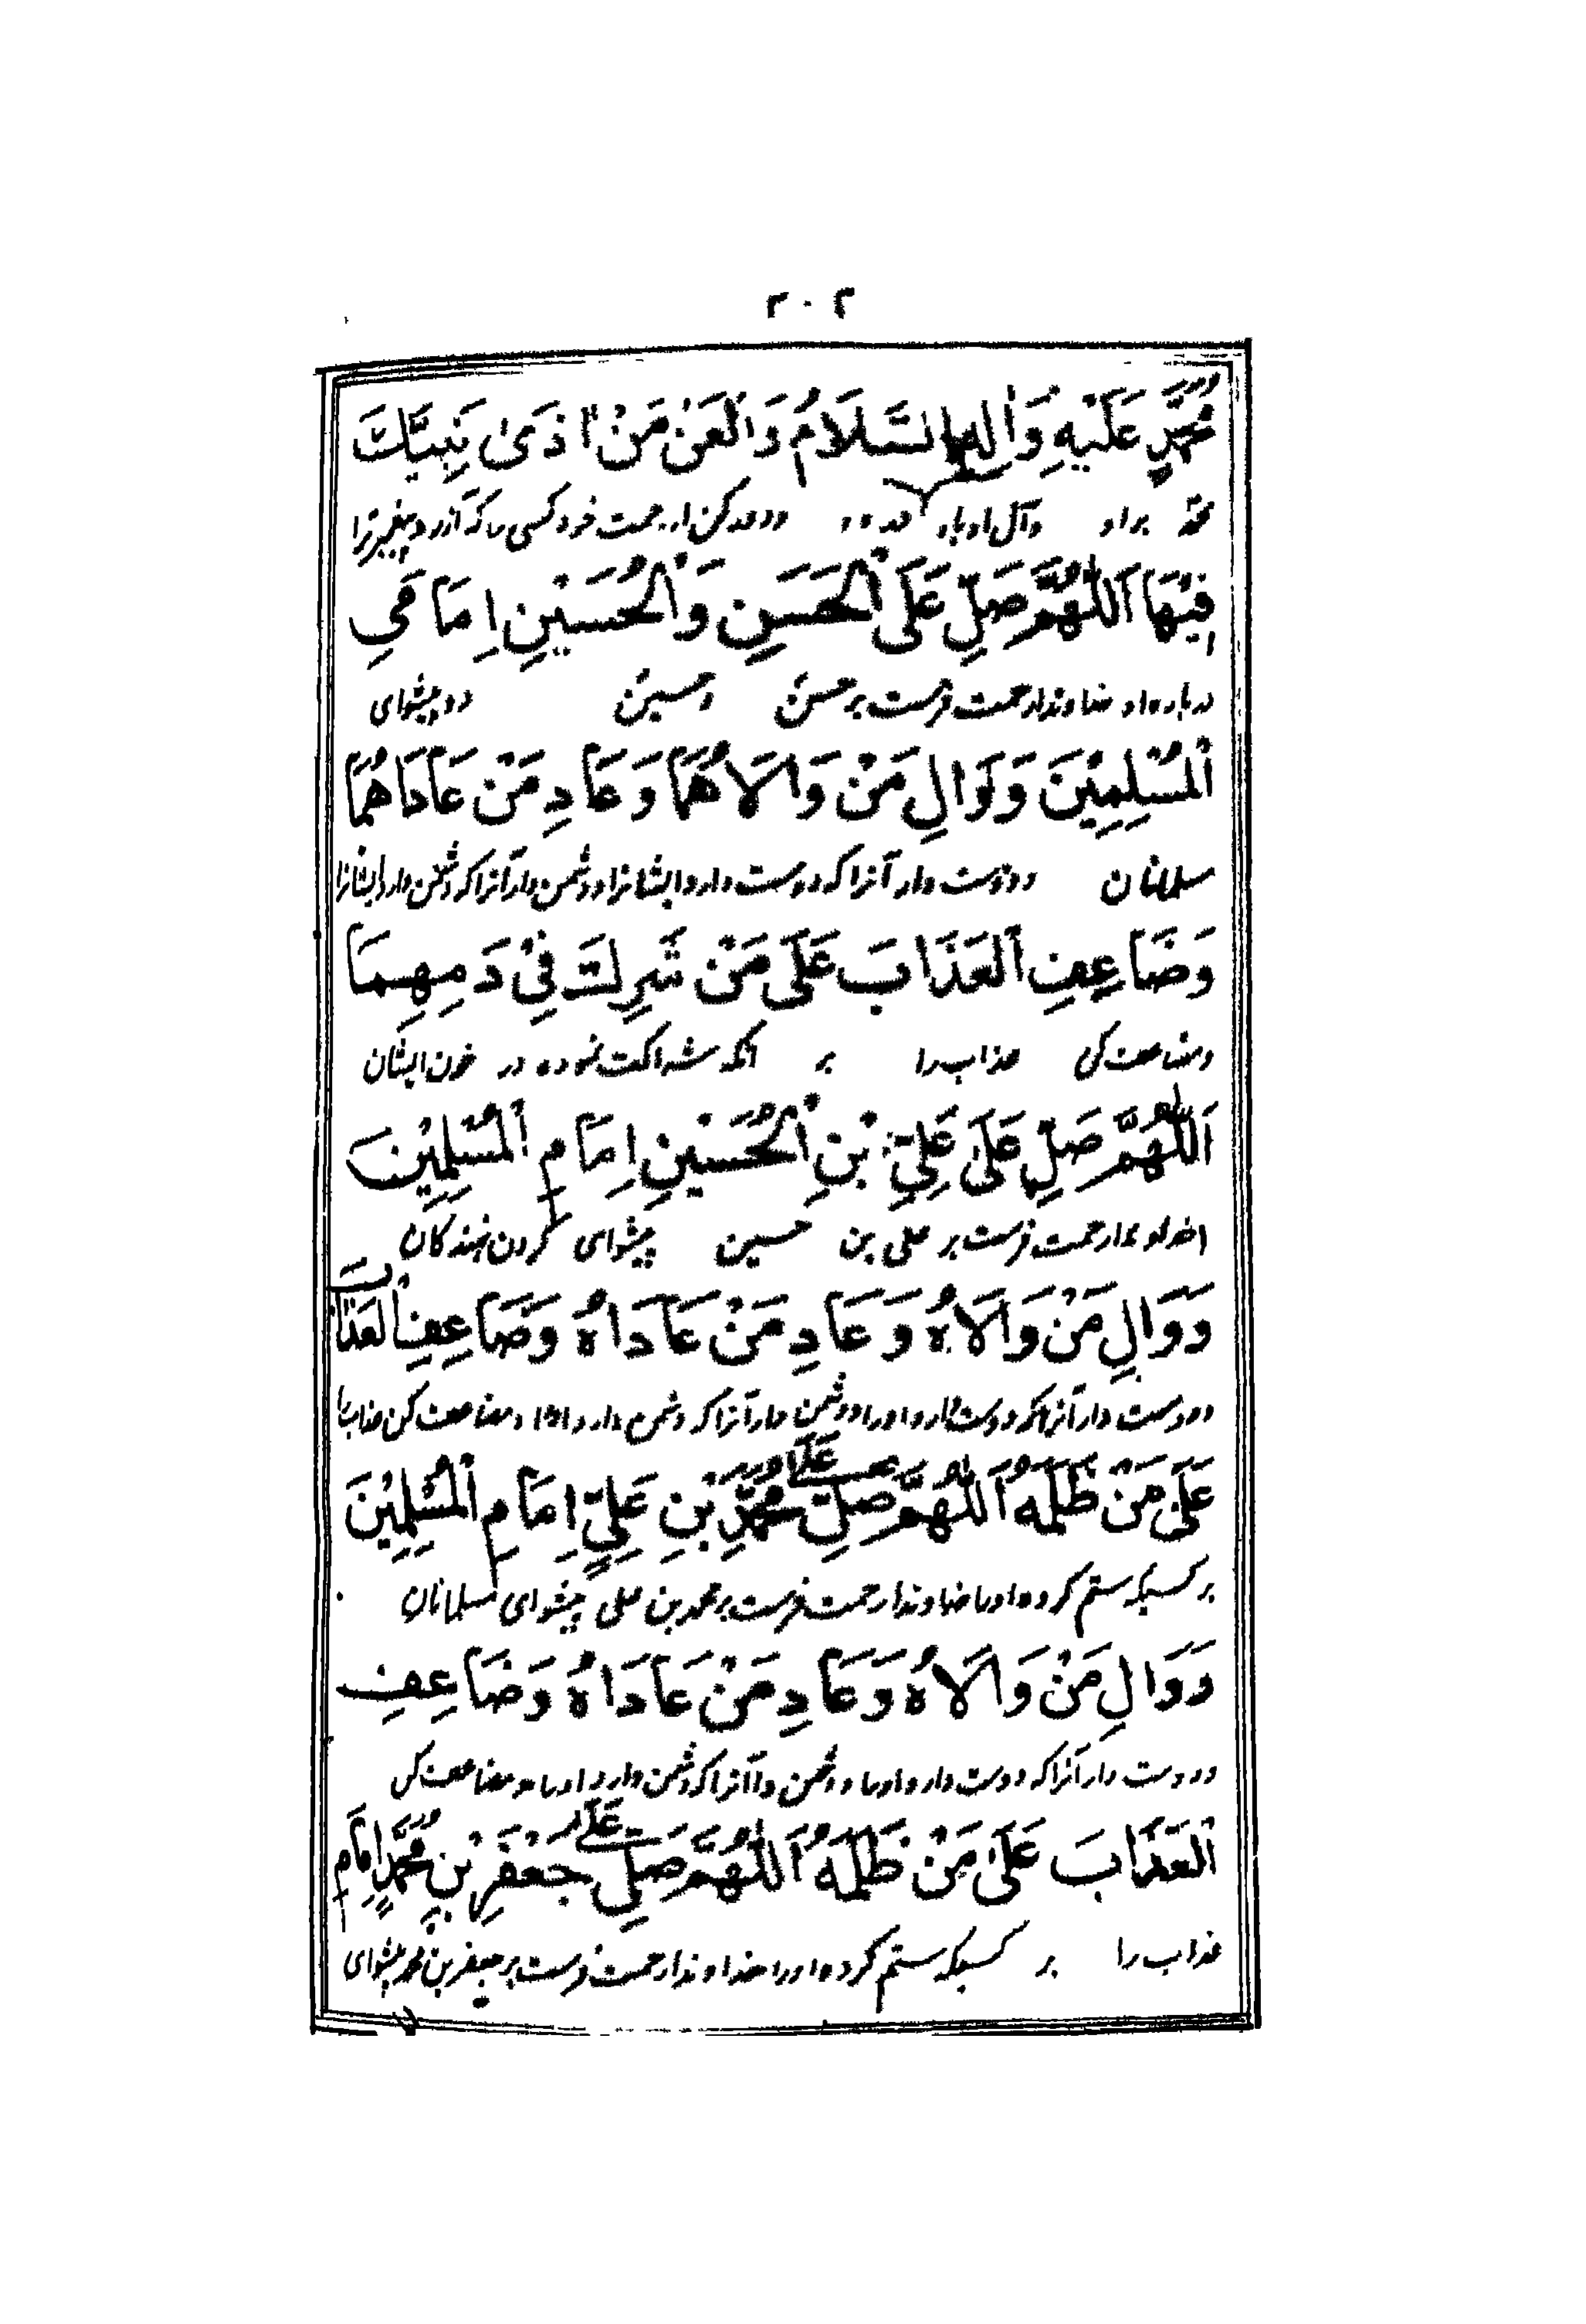 ٢٠٢
مُحَمَّدٍ عَلَيْهِ وَاٰلِهِ السَّلَامُ وَالْعَنْ مَنْ اٰذىٰ نَبِيَّكَ
محمّد براو وآل اوباد ودور کن از رحمت خود کسی را که آزرد پیغمبر ترا
فِيْهَا اَللّٰهُمَّ صَلِّ عَلَى الْحَسَنِ وَالْحُسَيْنِ اِمَامَيِ
درباره او خداوندا رحمت فرست بر حسن وحسین دو پیشوای
الْمُسْلِمِيْنَ وَوَالِ مَنْ وَالَاهُمَا وَعَادِ مَنْ عَادَاهُمَا
مسلمانان ودوست دار آنرا که دوست دارد ایشانرا ودشمن دار آنرا که دشمن دارد ایشانرا
وَضَاعِفِ الْعَذَابَ عَلَى مَنْ شَرِكَ فِيْ دَمِهِمَا
ومضاعف کن عذاب را بر آنکه شراکت نموده در خون ایشان
اَللّٰهُمَّ صَلِّ عَلَى عَلِيِّ بْنِ الْحُسَيْنِ اِمَامِ الْمُسْلِمِيْنَ
رحمت فرست بر علی بن حسین پیشوای گردن نهندکان
وَوَالِ مَنْ وَالَاهُ وَعَادِ مَنْ عَادَاهُ وَضَاعِفِ الْعَذَابَ
ودوست دار آنرا که دوست دارد اورا ودشمن دار آنرا که دشمن دارد اورا ومضاعف کن عذاب را
عَلَى مَنْ ظَلَمَهُ اَللّٰهُمَّ صَلِّ عَلَى مُحَمَّدِ بْنِ عَلِيٍّ اِمَامِ الْمُسْلِمِيْنَ
بر کسیکه ستم کرده اورا خداوندا رحمت فرست بر محمد بن علی پیشوای مسلمانان
وَوَالِ مَنْ وَالَاهُ وَعَادِ مَنْ عَادَاهُ وَضَاعِفِ
ودوست دار آنرا که دوست دارد اورا ودشمن دار آنرا که دشمن دارد اورا ومضاعف کن
الْعَذَابَ عَلَى مَنْ ظَلَمَهُ اَللّٰهُمَّ صَلِّ عَلَى جَعْفَرِ بْنِ مُحَمَّدٍ اِمَامِ
عذاب را بر کسیکه ستم کرده اورا خداوندا رحمت فرست بر جعفر بن محمد پیشوای